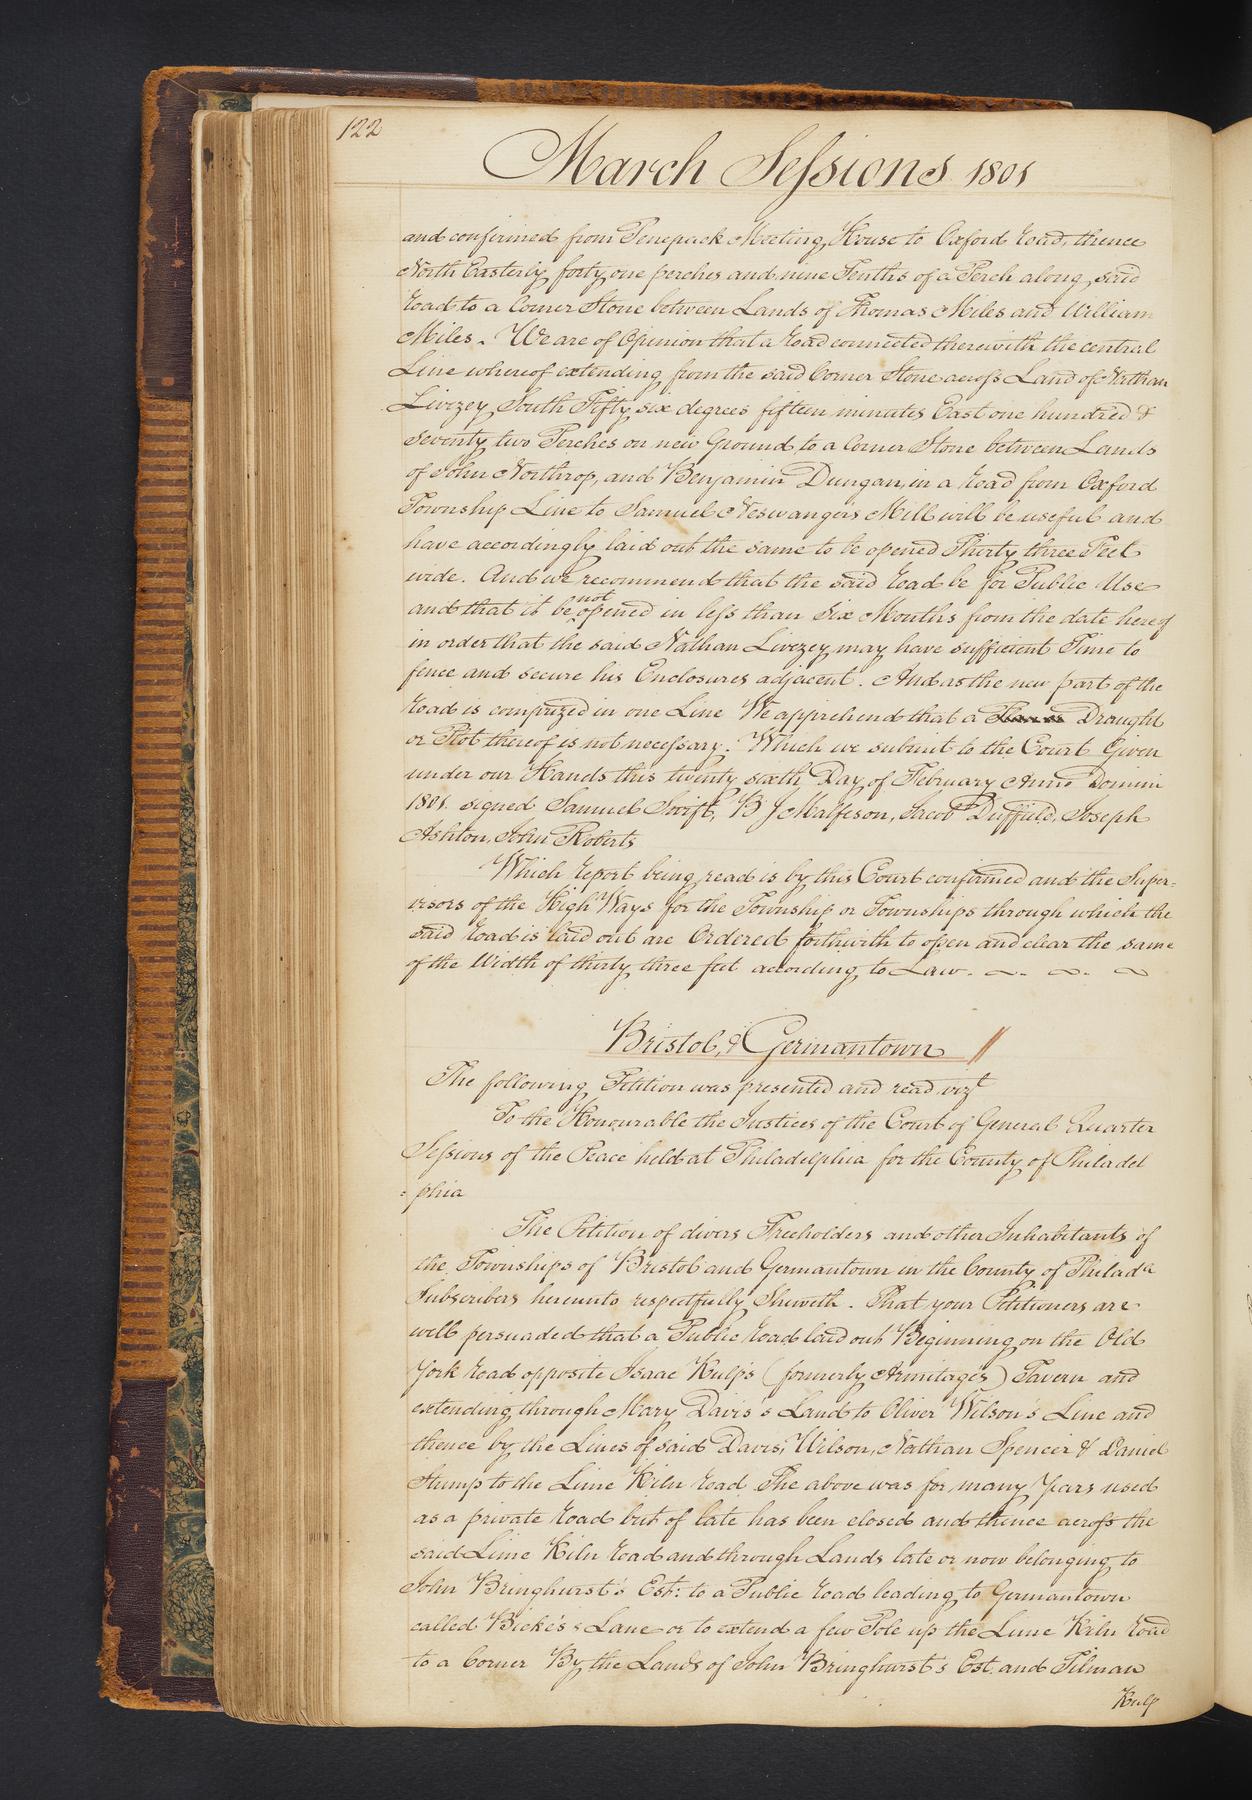 122
March Sessions 1801
and confirmed from Penepack Meeting House to Oxford Road, thence
North Easterly forty one perches and nine Tenths of a Perch along said
Road to a Corner Stone between Lands of Thomas Miles and William
Miles. We are of Opinion that a Road connected therewith the central
Line whereof extending from the said Corner Stone across Land of Nathan
Livezey South Fifty six degrees fifteen minutes East one hundred &
seventy two Perches on new Ground to a Corner Stone between Lands
of John Northrop, and Benjamin Dungan, in a Road from Oxford
Township Line to Samuel Neswangers Mill will be useful and
have accordingly laid out the same to be opened Thirty three Feet
wide. And we recommend that the said Road be for Public Use
and that it be not opened in less than Six Months from the date hereof
in order that the said Nathan Livezey may have sufficient Time to
fence and secure his Enclosures adjacent. And as the new part of the
Road is comprized in one Line We apprehend that a Draught
or Plot thereof is not necessary. Which we submit to the Court Given
under our Hands this twenty sixth Day of February Anno Domini
1801. signed Samuel Swift, B J Malfeson, Jacob Duffield, Joseph
Ashton, John Roberts
Which Report being read is by this Court confirmed and the Super-
visors of the High Ways for the Township or Townships through which the
said Road is laid out are Ordered forthwith to open and clear the same
of the Width of thirty three feet according to Law.
Bristol, & Germantown
The following Petition was presented and read, vizt
To the Honourable the Justices of the Court of General Quarter
Sessions of the Peace held at Philadelphia for the County of Philadel
=phia
The Petition of divers Freeholders and other Inhabitants of
the Townships of Bristol and Germantown in the County of Philada
Subscribers hereunto respectfully Sheweth. That your Petitioners are
well persuaded that a Public Road laid out Beginning on the Old
York Road opposite Isaac Kulp's (formerly Armitage's) Tavern and
extending through Mary Davis's Land to Oliver Wilson's Line and
thence by the Lines of said Davis, Wilson, Nathan Spencer & Daniel
Stump to the Lime Kiln Road The above was for many Years used
as a private Road but of late has been closed and thence across the
said Lime Kiln Road and through Lands late or now belonging to
John Bringhurst's Est: to a Public Road leading to Germantown
called Bickes's Lane or to extend a few Pole up the Lime Kiln Road
to a Corner By the Lands of John Bringhurst's Est. and Tilman
Kulp